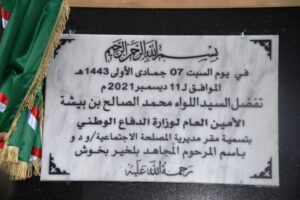 بسم الله الرحمن الرحيم
في يوم السبت 07 جمادى الأولى 1443هـ
الموافق لـ 11 ديسمبر 2021م
تفضل السيد اللواء محمد الصالح بن بيشة
الأمين العام لوزارة الدفاع الوطني
بتسمية مقر مديرية المصلحة الاجتماعية/و د و
باسم المرحوم المجاهد بلخير بخوش
رحمة الله عليه